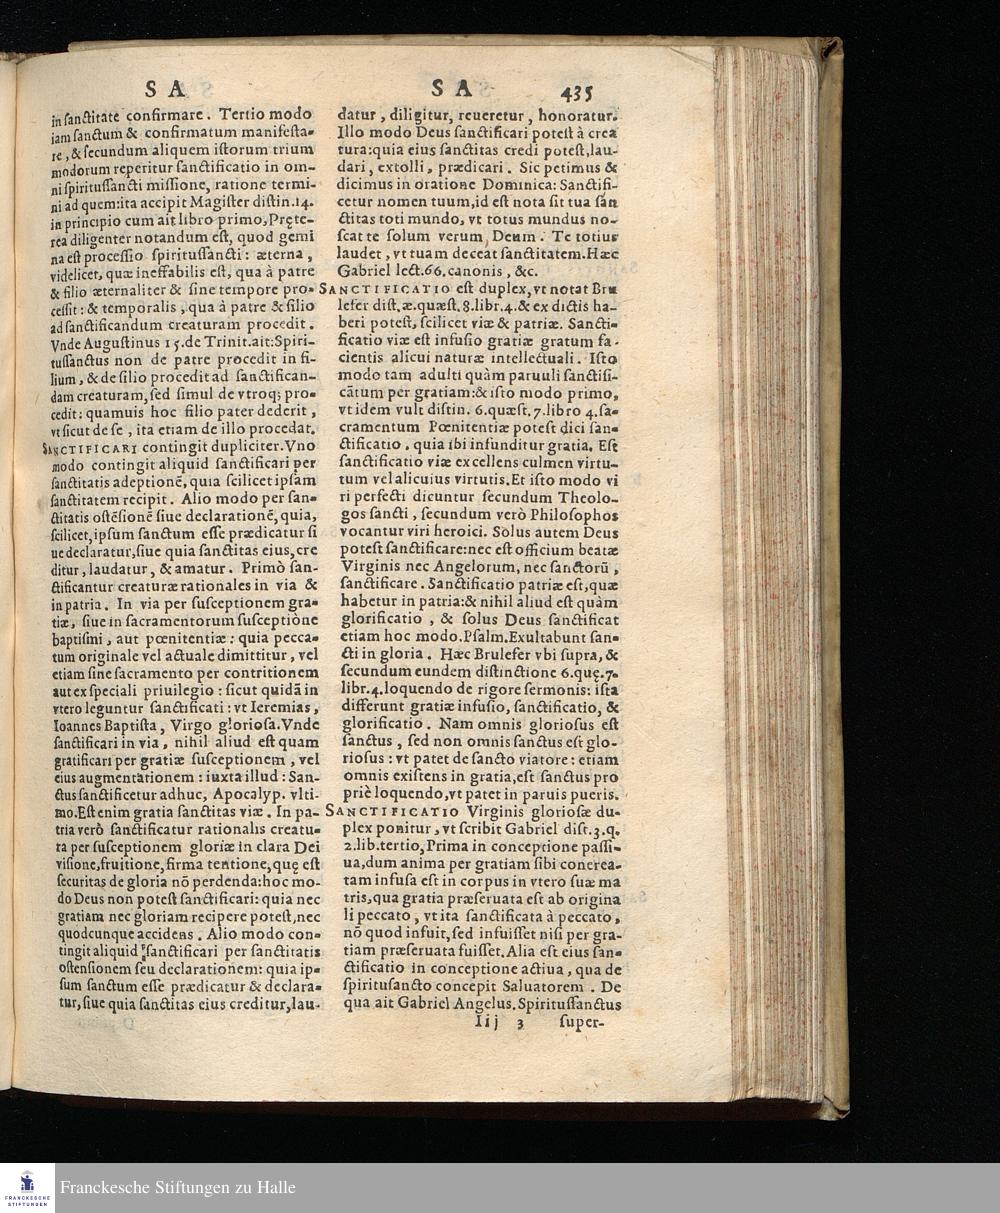 S A
S A
435
in sanctitate confirmare. Tertio modo
iam sanctum & confirmatum manifesta-
re, & secundum aliquem istorum trium
modorum reperitur sanctificatio in om-
ni spiritussancti missione, ratione termi-
ni ad quem: ita accipit Magister distin. 14.
in principio cum ait libro primo, Pręte-
rea diligenter notandum est, quod gemi
na est processio spiritussancti: æterna,
videlicet, quæ ineffabilis est, qua à patre
& filio æternaliter & sine tempore pro-
cessit: & temporalis, qua à patre & filio
ad sanctificandum creaturam procedit.
Vnde Augustinus 15. de Trinit. ait: Spiri-
tussanctus non de patre procedit in fi-
lium, & de filio procedit ad sanctifican-
dam creaturam, sed simul de vtroq; pro-
cedit: quamuis hoc filio pater dederit,
vt sicut de se, ita etiam de illo procedat.
SANCTIFICARI contingit dupliciter. Vno
modo contingit aliquid sanctificari per
sanctitatis adeptionē, quia scilicet ipsam
sanctitatem recipit. Alio modo per san-
ctitatis ostēsionē siue declarationē, quia,
scilicet, ipsum sanctum esse prædicatur si
ue declaratur, siue quia sanctitas eius, cre
ditur, laudatur, & amatur. Primò san-
ctificantur creaturæ rationales in via &
in patria. In via per susceptionem gra-
tiæ, siue in sacramentorum susceptione
baptismi, aut pœnitentiæ: quia pecca-
tum originale vel actuale dimittitur, vel
etiam sine sacramento per contritionem
aut ex speciali priuilegio: sicut quidā in
vtero leguntur sanctificati: vt Ieremias,
Ioannes Baptista, Virgo gloriosa. Vnde
sanctificari in via, nihil aliud est quam
gratificari per gratiæ susceptionem, vel
eius augmentationem: iuxta illud: San-
ctus sanctificetur adhuc, Apocalyp. vlti-
mo. Est enim gratia sanctitas viæ. In pa-
tria verò sanctificatur rationalis creatu-
ra per susceptionem gloriæ in clara Dei
visione, fruitione, firma tentione, quę est
securitas de gloria nō perdenda: hoc mo-
do Deus non potest sanctificari: quia nec
gratiam nec gloriam recipere potest, nec
quodcunque accidens. Alio modo con-
tingit aliquid sanctificari per sanctitatis
ostensionem seu declarationem: quia ip-
sum sanctum esse prædicatur & declara-
tur, siue quia sanctitas eius creditur, lau-
datur, diligitur, reueretur, honoratur.
Illo modo Deus sanctificari potest à crea
tura: quia eius sanctitas credi potest, lau-
dari, extolli, prædicari. Sic petimus &
dicimus in oratione Dominica: Sanctifi-
cetur nomen tuum, id est nota sit tua san
ctitas toti mundo, vt totus mundus no-
scat te solum verum Deum. Te totius
laudet, vt tuam deceat sanctitatem. Hæc
Gabriel lect. 66. canonis, &c.
SANCTIFICATIO est duplex, vt notat Bru
lefer dist. æ. quæst. 8. libr. 4. & ex dictis ha-
beri potest, scilicet viæ & patriæ. Sancti-
ficatio viæ est infusio gratiæ gratum fa-
cientis alicui naturæ intellectuali. Isto
modo tam adulti quàm paruuli sanctifi-
cātum per gratiam: & isto modo primo,
vt idem vult distin. 6. quæst. 7. libro 4. sa-
cramentum Pœnitentiæ potest dici san-
ctificatio, quia ibi infunditur gratia. Est
sanctificatio viæ excellens culmen virtu-
tum vel alicuius virtutis. Et isto modo vi
ri perfecti dicuntur secundum Theolo-
gos sancti, secundum verò Philosophos
vocantur viri heroici. Solus autem Deus
potest sanctificare: nec est officium beatæ
Virginis nec Angelorum, nec sanctorū,
sanctificare. Sanctificatio patriæ est, quæ
habetur in patria: & nihil aliud est quàm
glorificatio, & solus Deus sanctificat
etiam hoc modo. Psalm. Exultabunt san-
cti in gloria. Hæc Brulefer vbi supra, &
secundum eundem distinctione 6. quę. 7.
libr. 4. loquendo de rigore sermonis: ista
differunt gratiæ infusio, sanctificatio, &
glorificatio. Nam omnis gloriosus est
sanctus, sed non omnis sanctus est glo-
riosus: vt patet de sancto viatore: etiam
omnis existens in gratia, est sanctus pro
priè loquendo, vt patet in paruis pueris.
SANCTIFICATIO Virginis gloriosæ du-
plex ponitur, vt scribit Gabriel dist. 3. q.
2. lib. tertio, Prima in conceptione passi-
ua, dum anima per gratiam sibi concrea-
tam infusa est in corpus in vtero suæ ma
tris, qua gratia præseruata est ab origina
li peccato, vt ita sanctificata à peccato,
nō quod infuit, sed infuisset nisi per gra-
tiam præseruata fuisset. Alia est eius san-
ctificatio in conceptione actiua, qua de
spiritusancto concepit Saluatorem. De
qua ait Gabriel Angelus. Spiritussanctus
Iij 3 super-
FRANCKESCHE
STIFTUNGEN
Franckesche Stiftungen zu Halle